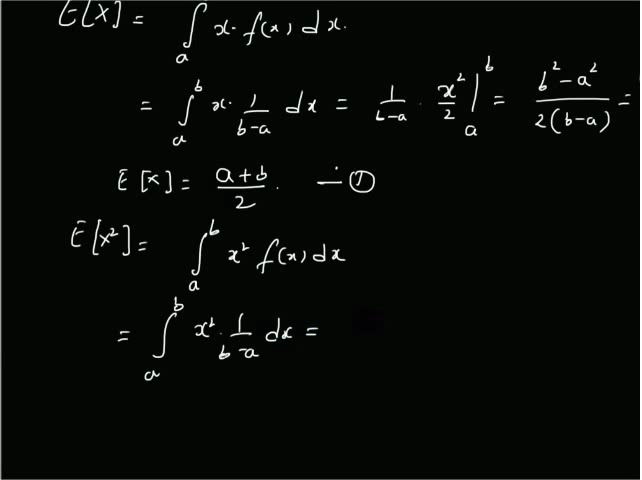 E[X] = ∫_a x. f(x) dx.
= ∫_a^b x. 1/(b-a) dx = 1/(b-a) . x²/2 |_a^b = (b²-a²)/(2(b-a)) =
E[X] = (a+b)/2 . — ①
E[X²] = ∫_a^b x² f(x) dx
= ∫_a^b x² . 1/(b-a) dx =